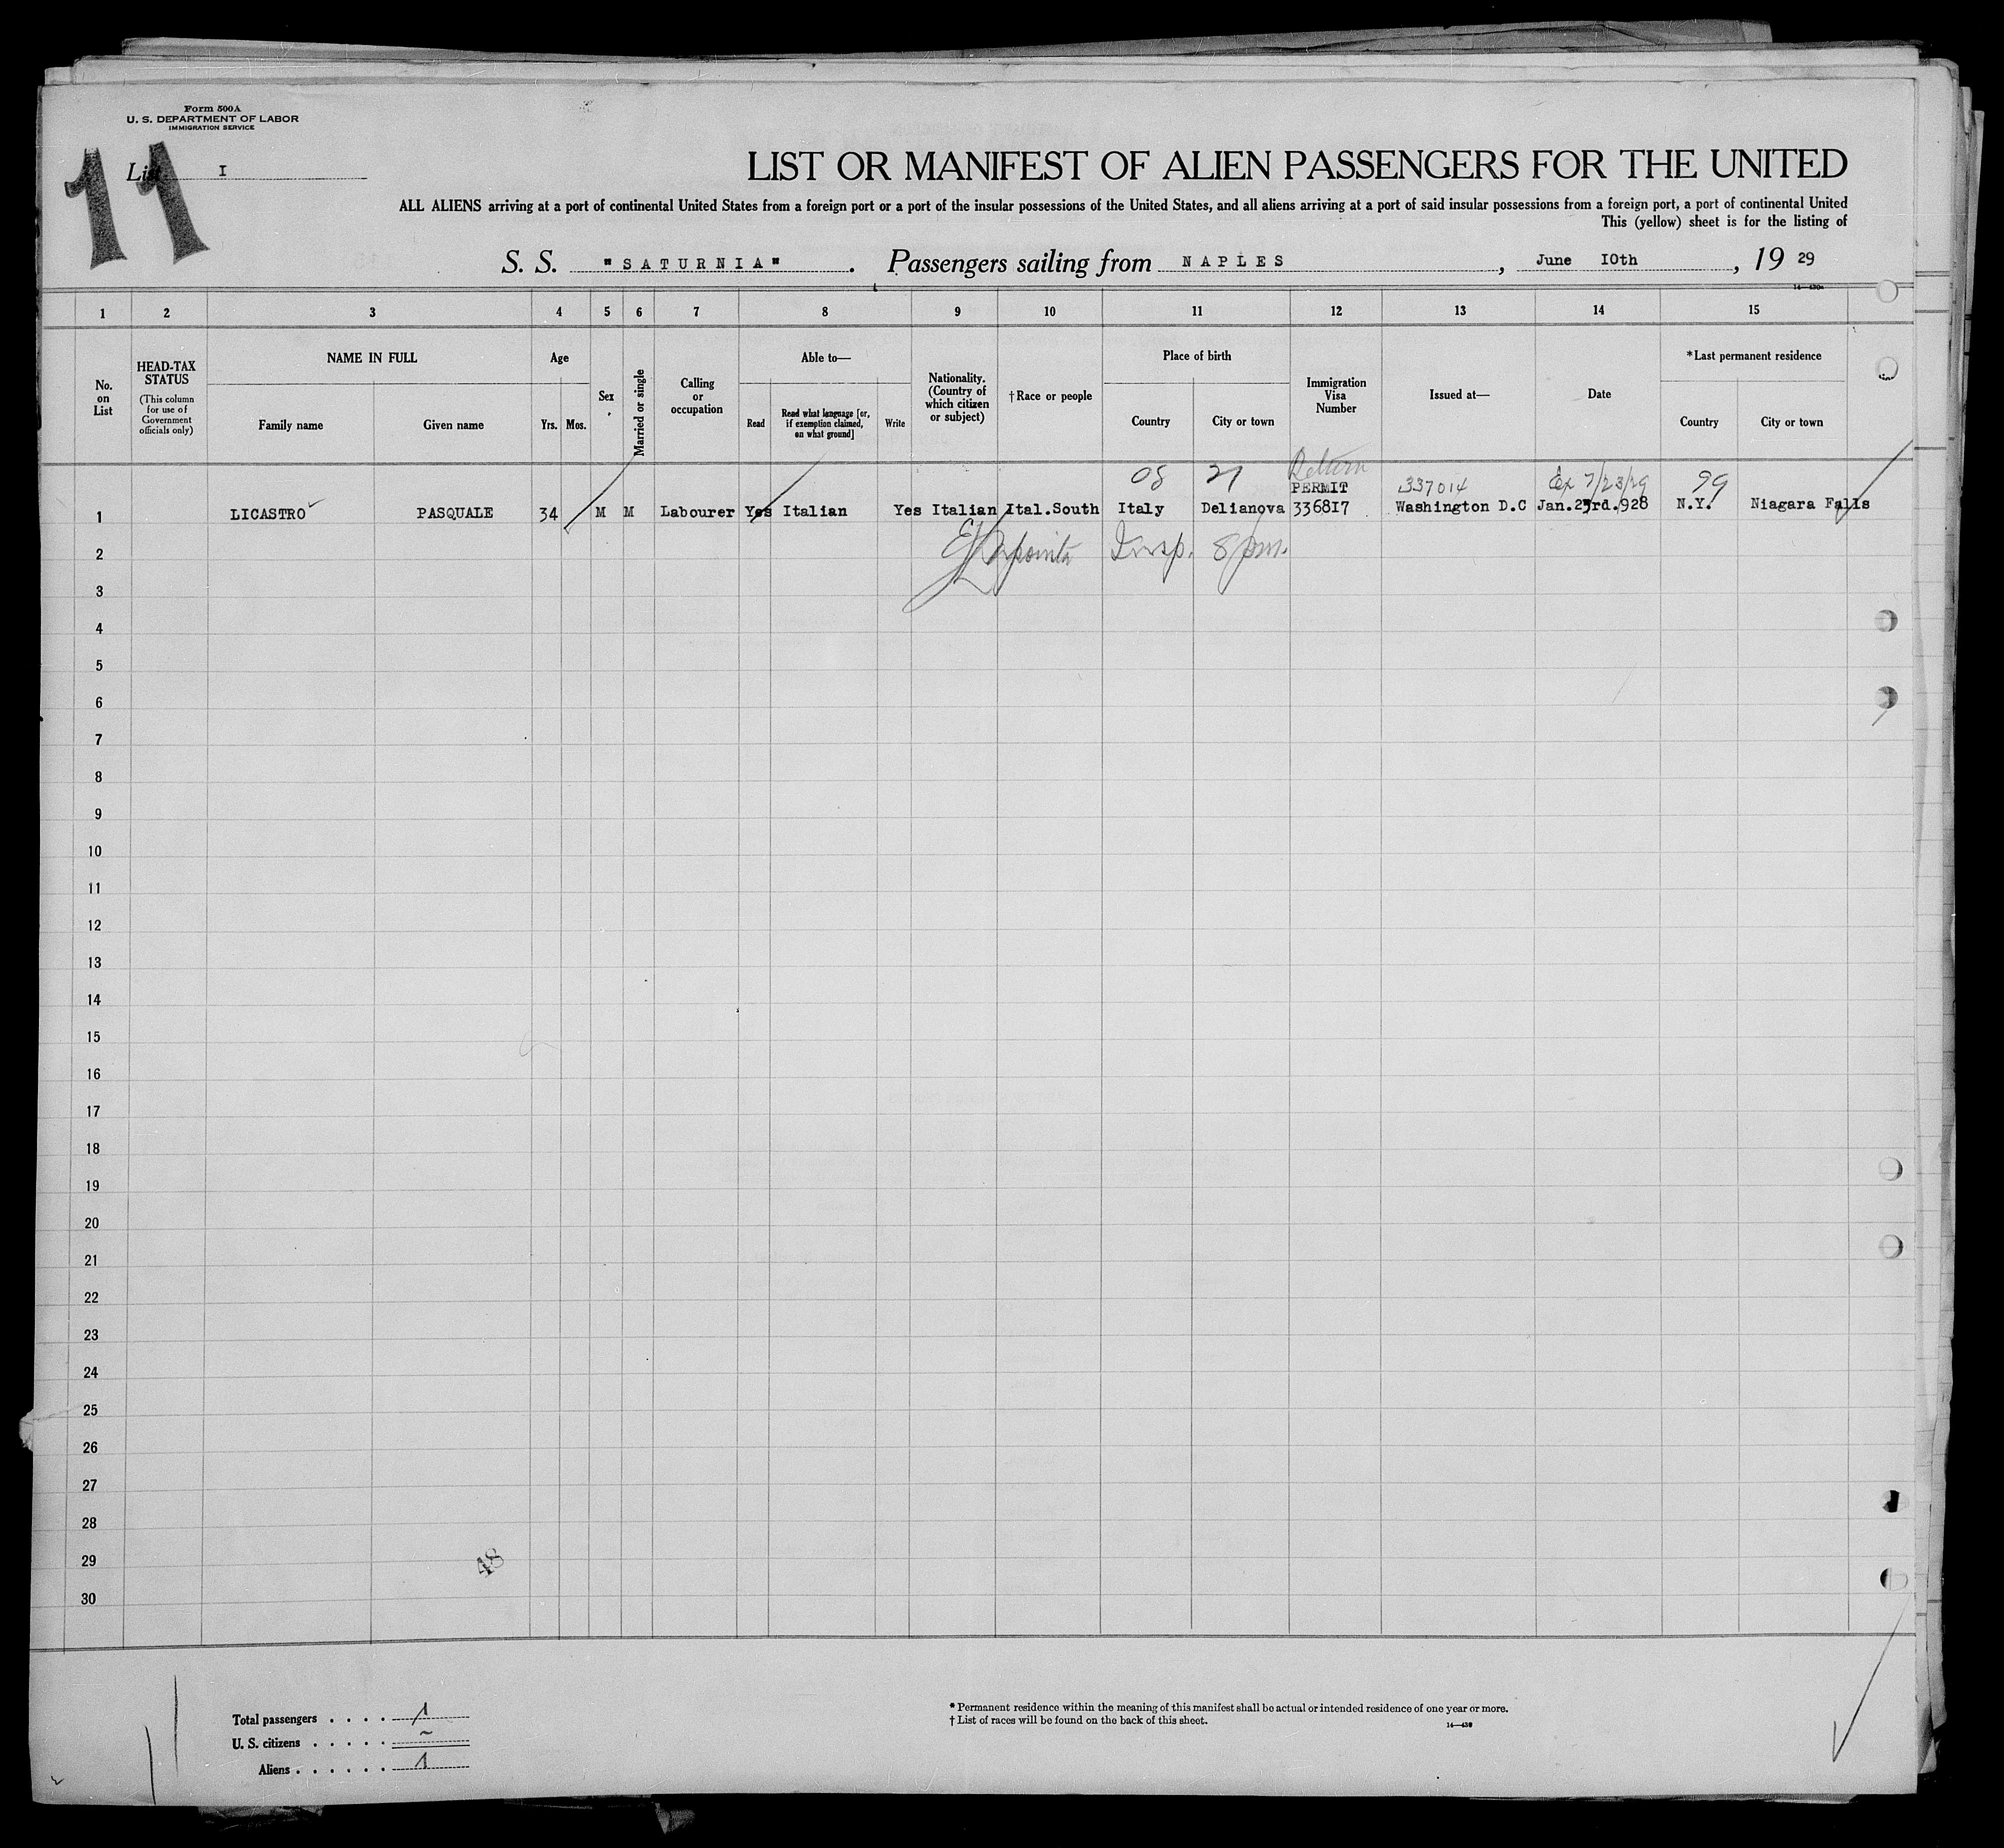 Form 500A
U. S. DEPARTMENT OF LABOR
IMMIGRATION SERVICE
11
List I
LIST OR MANIFEST OF ALIEN PASSENGERS FOR THE UNITED
ALL ALIENS arriving at a port of continental United States from a foreign port or a port of the insular possessions of the United States, and all aliens arriving at a port of said insular possessions from a foreign port, a port of continental United
This (yellow) sheet is for the listing of
S. S. "SATURNIA". Passengers sailing from NAPLES, June 10th, 19 29
1 2 3 4 5 6 7 8 9 10 11 12 13 14 15
No. on List
HEAD-TAX STATUS
(This column for use of Government officials only)
NAME IN FULL
Family name Given name
Age
Yrs. Mos.
Sex
Married or single
Calling or occupation
Able to—
Read
Read what language [or, if exemption claimed, on what ground]
Write
Nationality. (Country of which citizen or subject)
†Race or people
Place of birth
Country City or town
Immigration Visa Number
Issued at—
Date
*Last permanent residence
Country City or town
08 27 Return 337014 Ex 7/23/29 99
PERMIT
1 LICASTRO PASQUALE 34 M M Labourer Yes Italian Yes Italian Ital.South Italy Delianova 336817 Washington D.C Jan.23rd.928 N.Y. Niagara Falls
2 Insp. 8 pm.
3
4
5
6
7
8
9
10
11
12
13
14
15
16
17
18
19
20
21
22
23
24
25
26
27
28
29
30
48
Total passengers . . . . 1
U. S. citizens . . . . . –
Aliens . . . . . . 1
* Permanent residence within the meaning of this manifest shall be actual or intended residence of one year or more.
† List of races will be found on the back of this sheet.